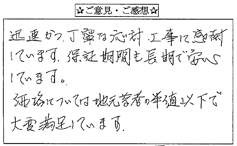 ☆ご意見・ご感想☆
迅速かつ丁寧な設計工事に感謝
しています。保証期間も長期で安心
しています。
価格については地元業者の半値以下で
大変満足しています。